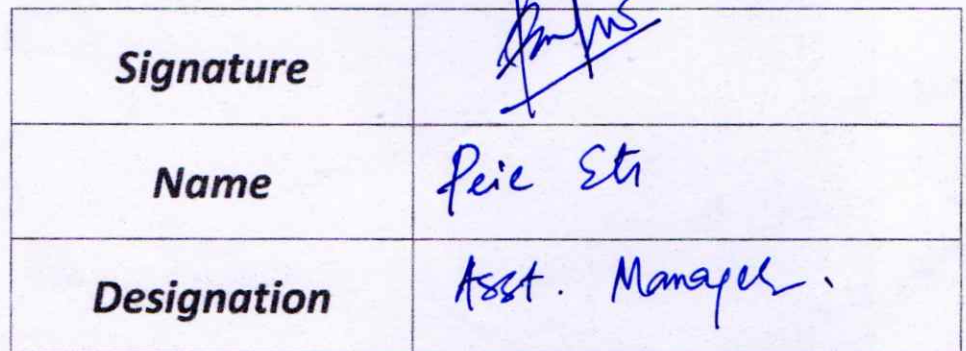 Signature
Name Peie Eti
Designation Asst. Manager.